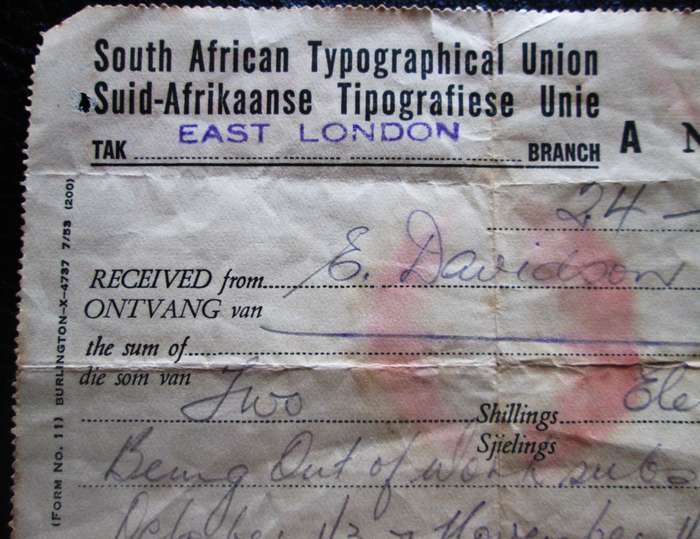 South African Typographical Union
Suid-Afrikaanse Tipografiese Unie
EAST LONDON
TAK BRANCH A N
24 -
RECEIVED from E. Davidson
ONTVANG van
the sum of
die som van Two Shillings Ele
Sjielings
Being Out of Work subs
October 1/3 - November 1
(FORM No. 11) BURLINGTON—X—4737 7/53 (200)